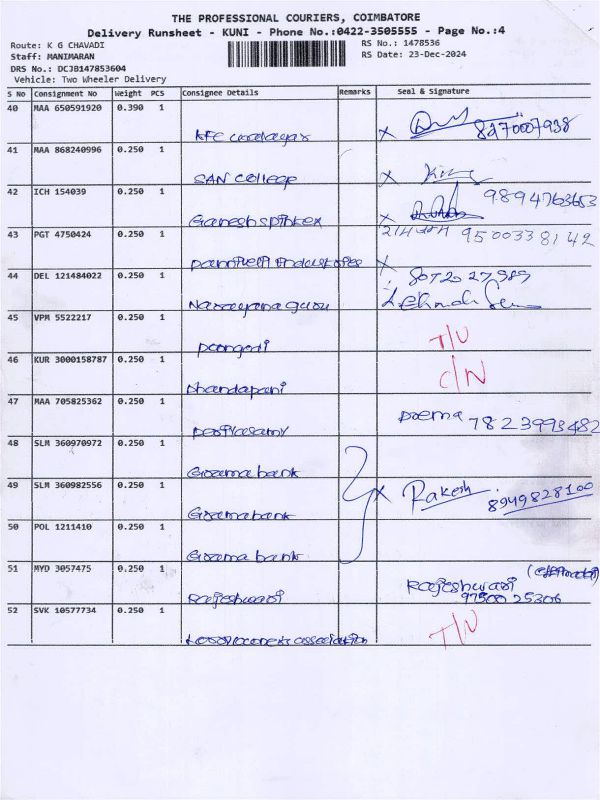 THE PROFESSIONAL COURIERS, COIMBATORE
Delivery Runsheet - KUNI - Phone No.:0422-3505555 - Page No.:4
Route: K G CHAVADI
RS No.: 1478536
Staff: MANIMARAN
RS Date: 23-Dec-2024
DRS No.: DCJB147853604
Vehicle: Two Wheeler Delivery
S No Consignment No Weight PCS Consignee Details Remarks Seal & Signature
40 MAA 650591920 0.390 1
x 8270007938
41 MAA 868240996 0.250 1
SAN College x
42 ICH 154039 0.250 1
9894763653
Ganesh x
43 PGT 4750424 0.250 1
9500338142
x
44 DEL 121484022 0.250 1
8072027989
Narayana guru
45 VPM 5522217 0.250 1
T/U
Poongodi
46 KUR 3000158787 0.250 1
C/N
Dhandapani
47 MAA 705825362 0.250 1
Poema 7823993482
Periyasamy
48 SLM 360970972 0.250 1
Grama bank
49 SLM 360982556 0.250 1
x Rakesh 8949828100
Grama bank
50 POL 1211410 0.250 1
Grama bank
51 MYD 3057475 0.250 1
Rajeshwari
Rajeshwari 9750025306
52 SVK 10577734 0.250 1
T/U
association